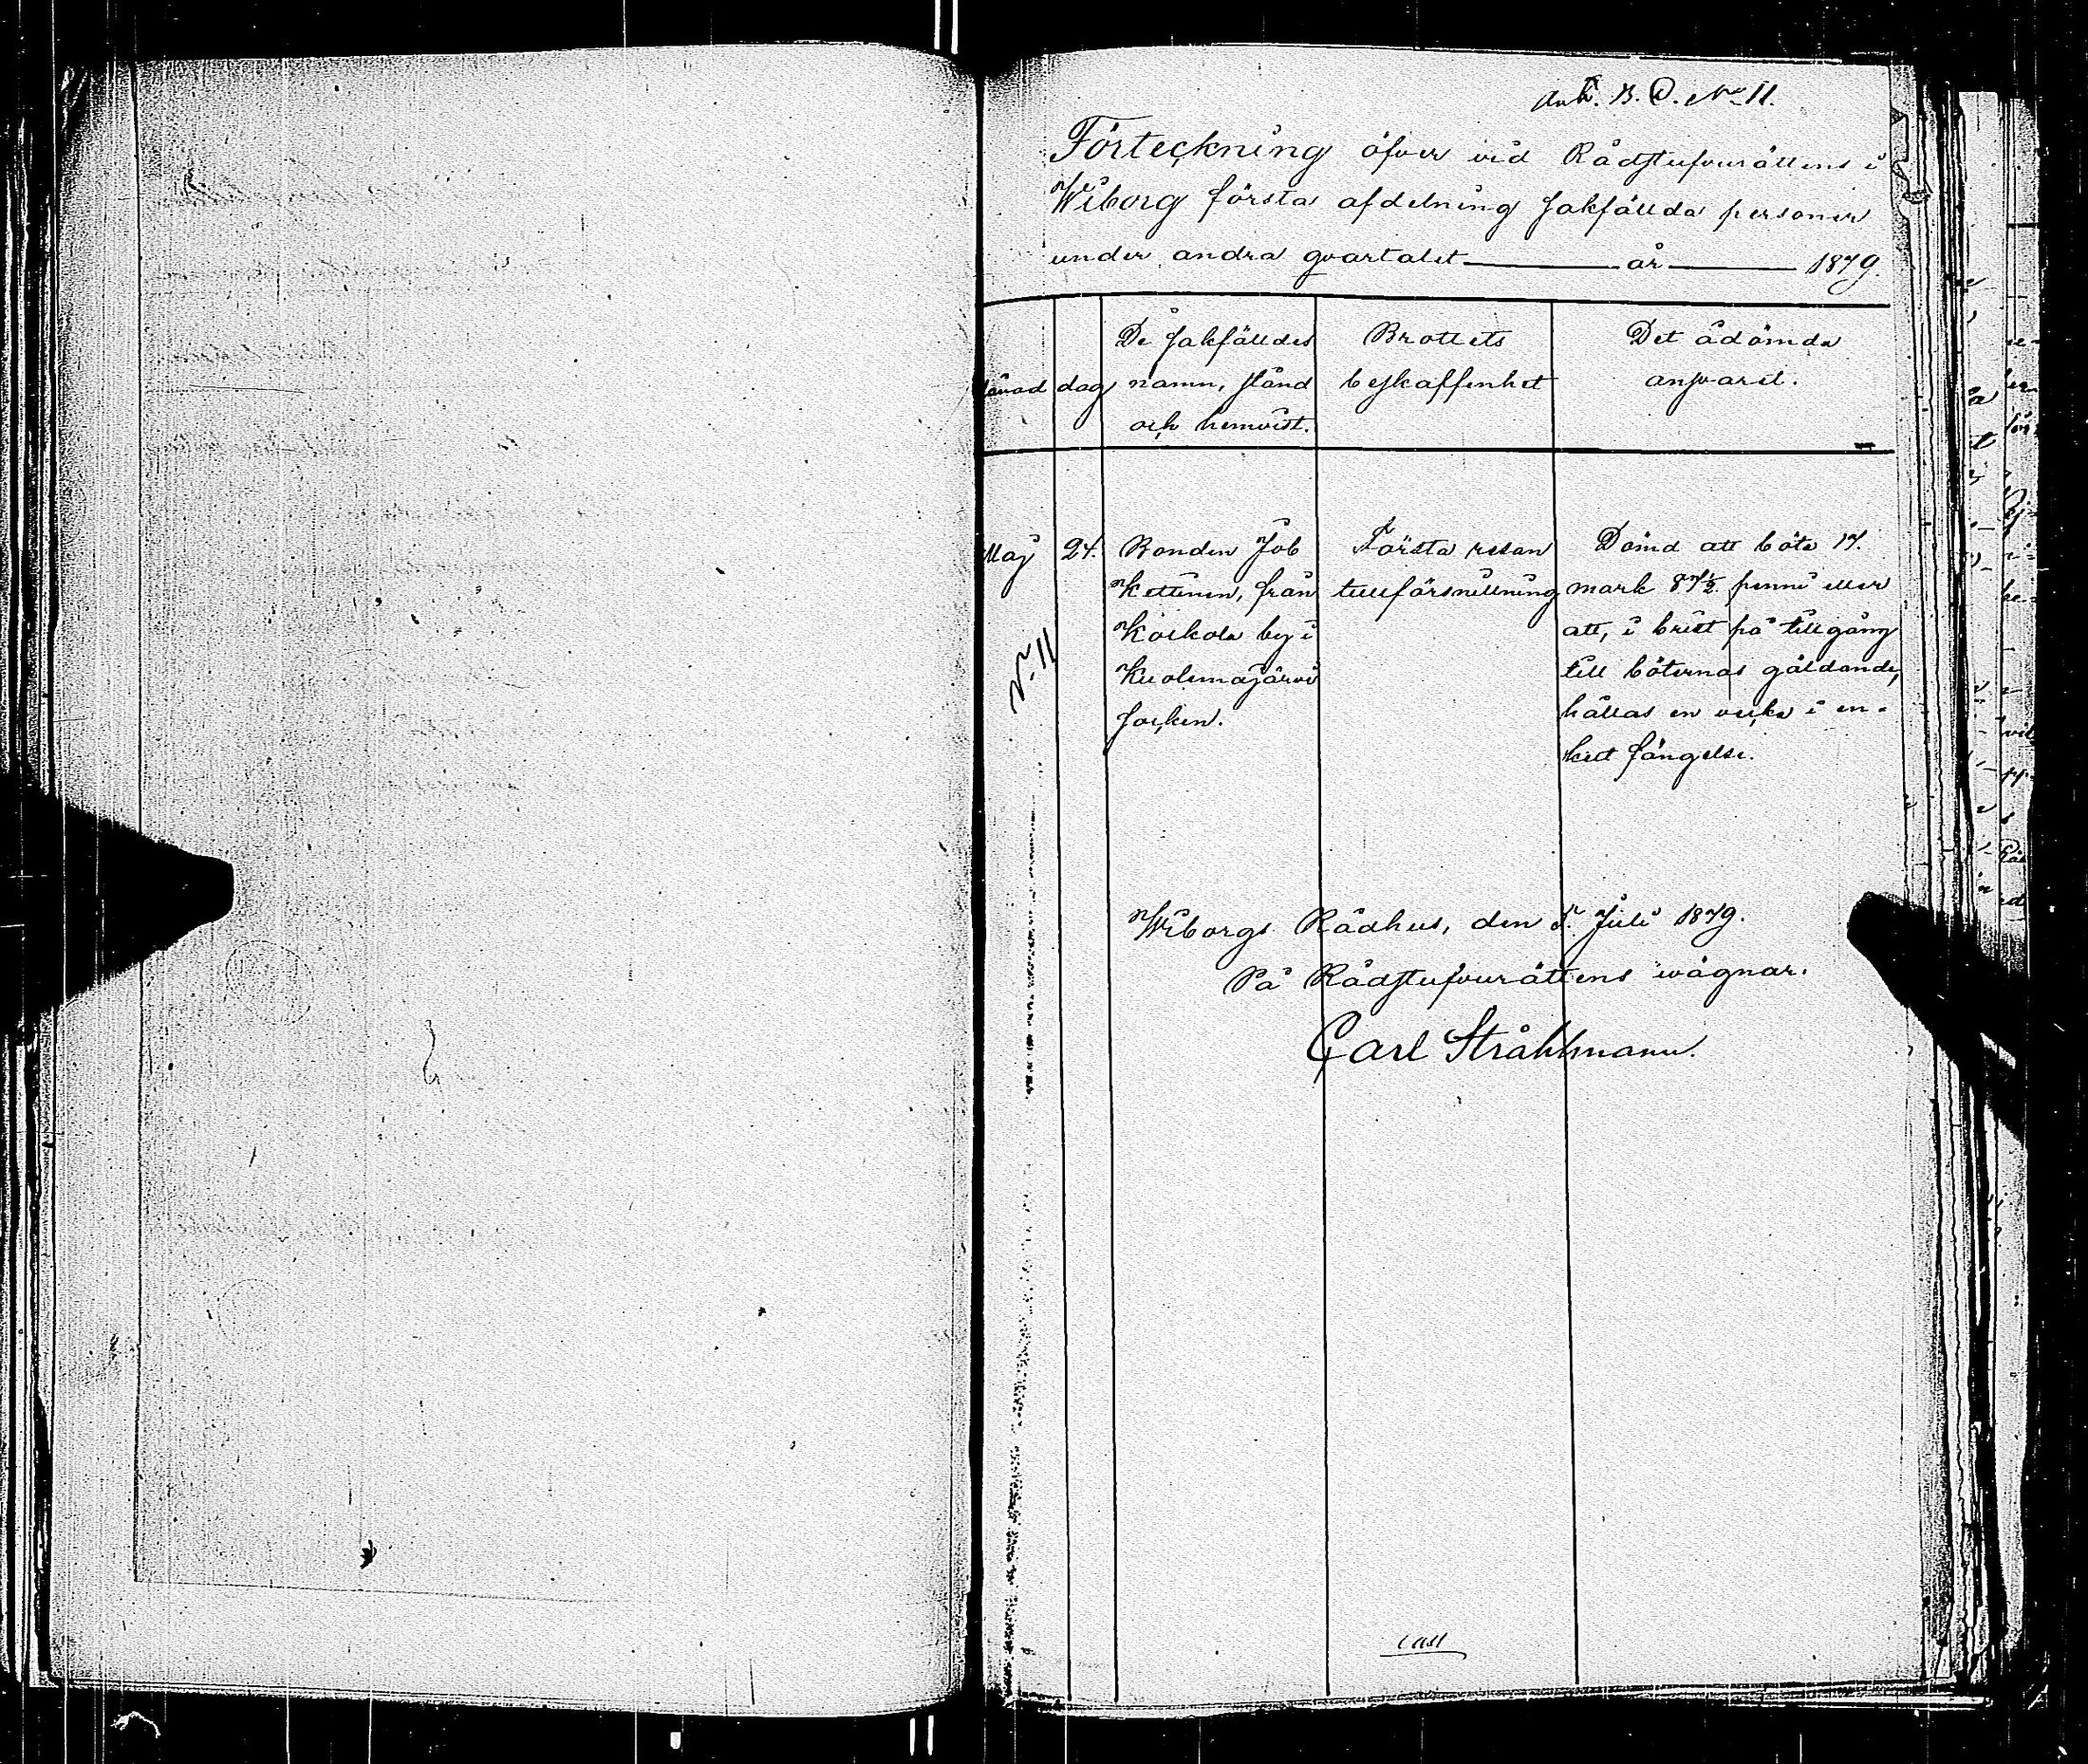 Ank. B. O. No 11.
Förteckning öfver vid Rådstufvurättens i
Wiborg första afdelning sakfällda personer
under andra qvartalet år 1879.
Månad dag De sakfälldes namn, stånd och hemvist. Brottets beskaffenhet Det ådömda ansvaret.
Maj 24. Bonden Job Första resan Dömd att böta 17.
Kettinen, från tillförsnillning mark 87½ penni eller
Koikola by i att, i brist på tillgång
Kuolemajärvi till böternas gäldande,
socken. hållas en vecka i en-
kelt fängelse.
N. 11
Wiborgs Rådhus, den 5. Juli 1879.
På Rådstufvurättens wägnar.
Carl Ståhlmann.